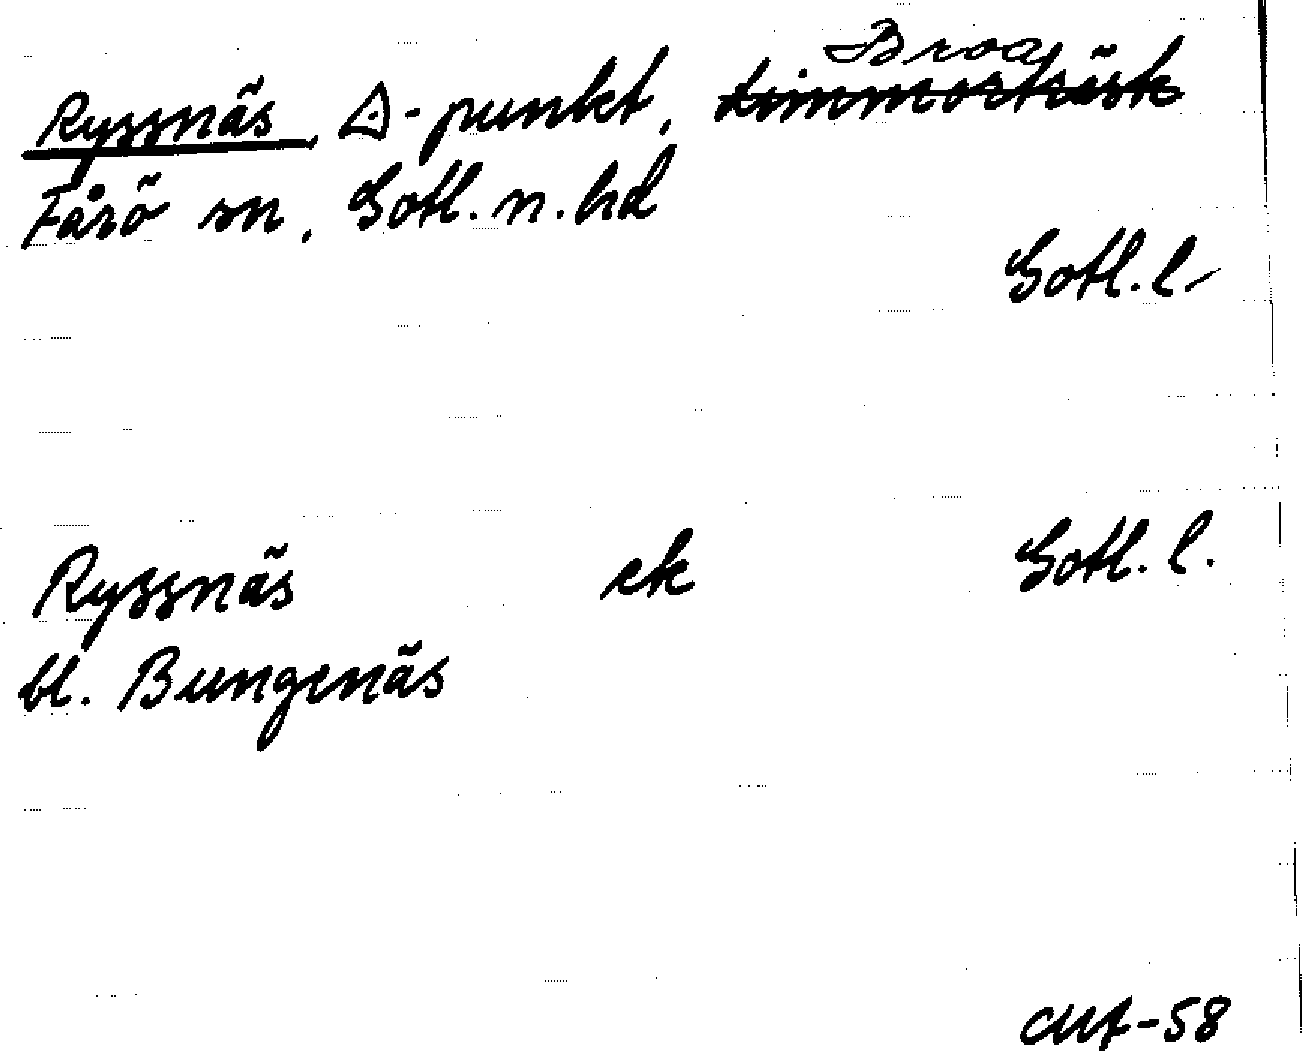 Broa
Ryssnäs, △-punkt, Limmorträsk
Fårö sn, Gotl. n. hd
Gotl. l.
Ryssnäs ek Gotl. l.
bl. Bungenäs
-58